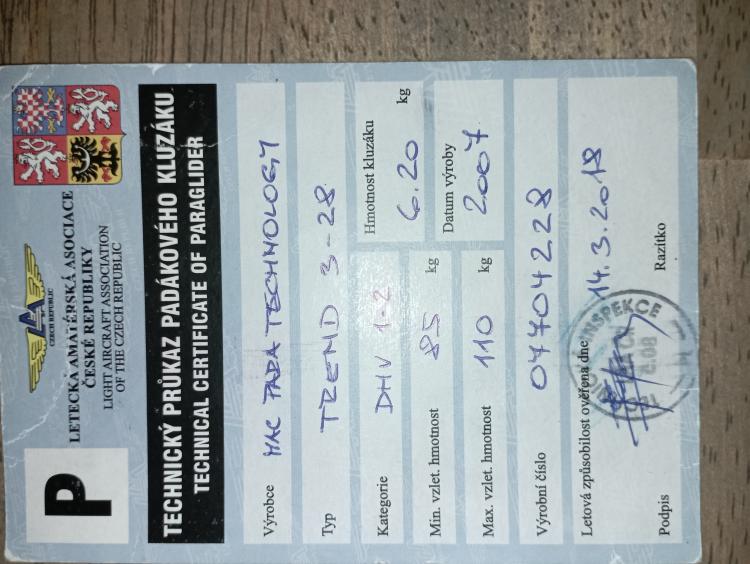 P
CZECH REPUBLIC
LETECKÁ AMATÉRSKÁ ASOCIACE
ČESKÉ REPUBLIKY
LIGHT AIRCRAFT ASSOCIATION
OF THE CZECH REPUBLIC
TECHNICKÝ PRŮKAZ PADÁKOVÉHO KLUZÁKU
TECHNICAL CERTIFICATE OF PARAGLIDER
Výrobce MAC PARA TECHNOLOGY
Typ TREND 3-28
Kategorie DHV 1-2
Hmotnost kluzáku 6.20 kg
Min. vzlet. hmotnost 85 kg
Datum výroby 2007
Max. vzlet. hmotnost 110 kg
Výrobní číslo 04704228
Letová způsobilost ověřena dne 14.3.2018
INSPEKCE
Podpis
Razítko